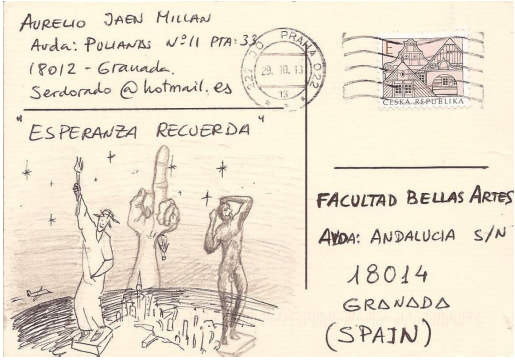 AURELIO JAEN MILLAN
Avda: PULIANAS Nº 11 PTA: 33
18012 - Granada.
Serdorado @ hotmail.es
PRAHA 022
29.10.13
13
E
ČESKÁ REPUBLIKA
"ESPERANZA RECUERDA"
FACULTAD BELLAS ARTES
AVDA: ANDALUCIA S/N
18014
GRANADA
(SPAIN)